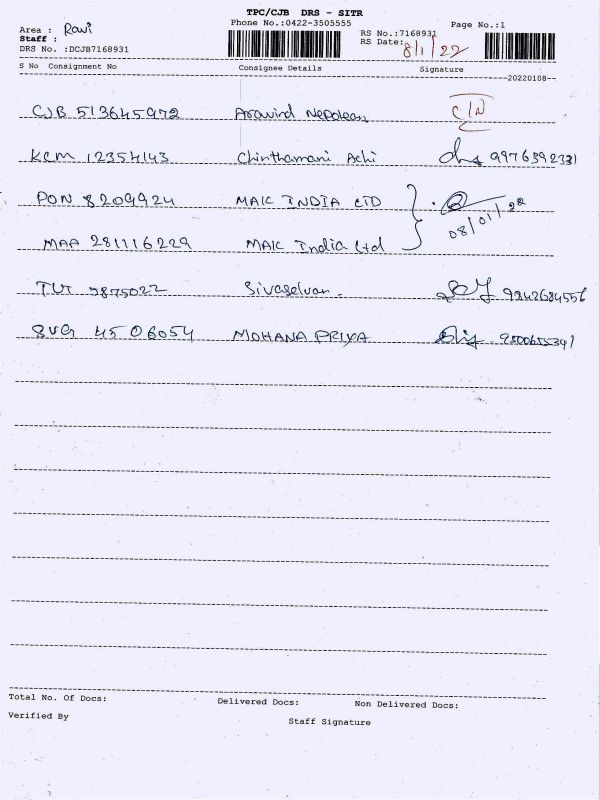 TPC/CJB DRS - SITR
Phone No.:0422-3505555 Page No.:1
Area : Ravi RS No.:7168931
Staff : RS Date: 8/1/22
DRS No. :DCJB7168931
S No Consignment No Consignee Details Signature
20220108
CJB 513645972 Aravind Nepolean C/N
KCM 12354143 Chinthamani Achi 9976392331
PON 8209924 MAK INDIA LTD
08/01/22
MAA 281116229 MAK India Ltd
TUT 5875022 Sivaselvan. 9242684556
SVG 4506054 MOHANA PRIYA
Total No. Of Docs: Delivered Docs: Non Delivered Docs:
Verified By Staff Signature